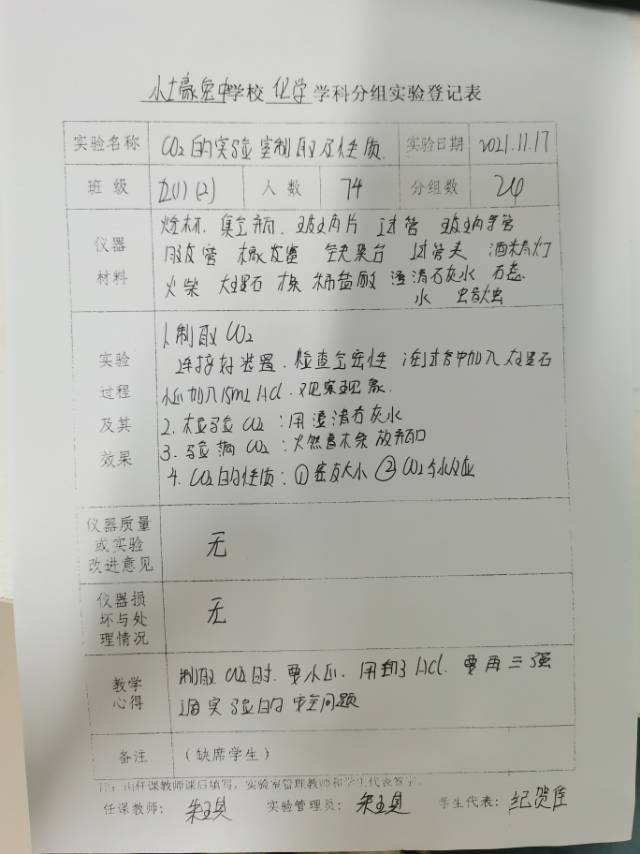 小土豪兔中学校 化学 学科分组实验登记表
实验名称 CO2的实验室制取及性质 实验日期 2021.11.17
班级 九(1)(2) 人数 74 分组数 24
仪器材料
烧杯、集气瓶、玻璃片 试管 玻璃导管
胶皮管 橡皮塞 铁架台 试管夹 酒精灯
火柴 大理石 木条 稀盐酸 澄清石灰水 石蕊
水
实验过程及其效果
1、制取CO2
连接好装置、检查气密性 往试管中加入大理石
小心加入15mL HCl、观察现象.
2. 检验CO2：用澄清石灰水
3. 验满CO2：燃着木条放瓶口
4. CO2的性质：①密度大小 ②CO2与水反应
仪器质量或实验改进意见 无
仪器损坏与处理情况 无
教学心得
制取CO2时、要小心、用到了HCl、要再三强
调实验的安全问题
备注 （缺席学生）
注：由任课教师课后填写，实验室管理教师和学生代表签字。
任课教师： 实验管理员： 学生代表：